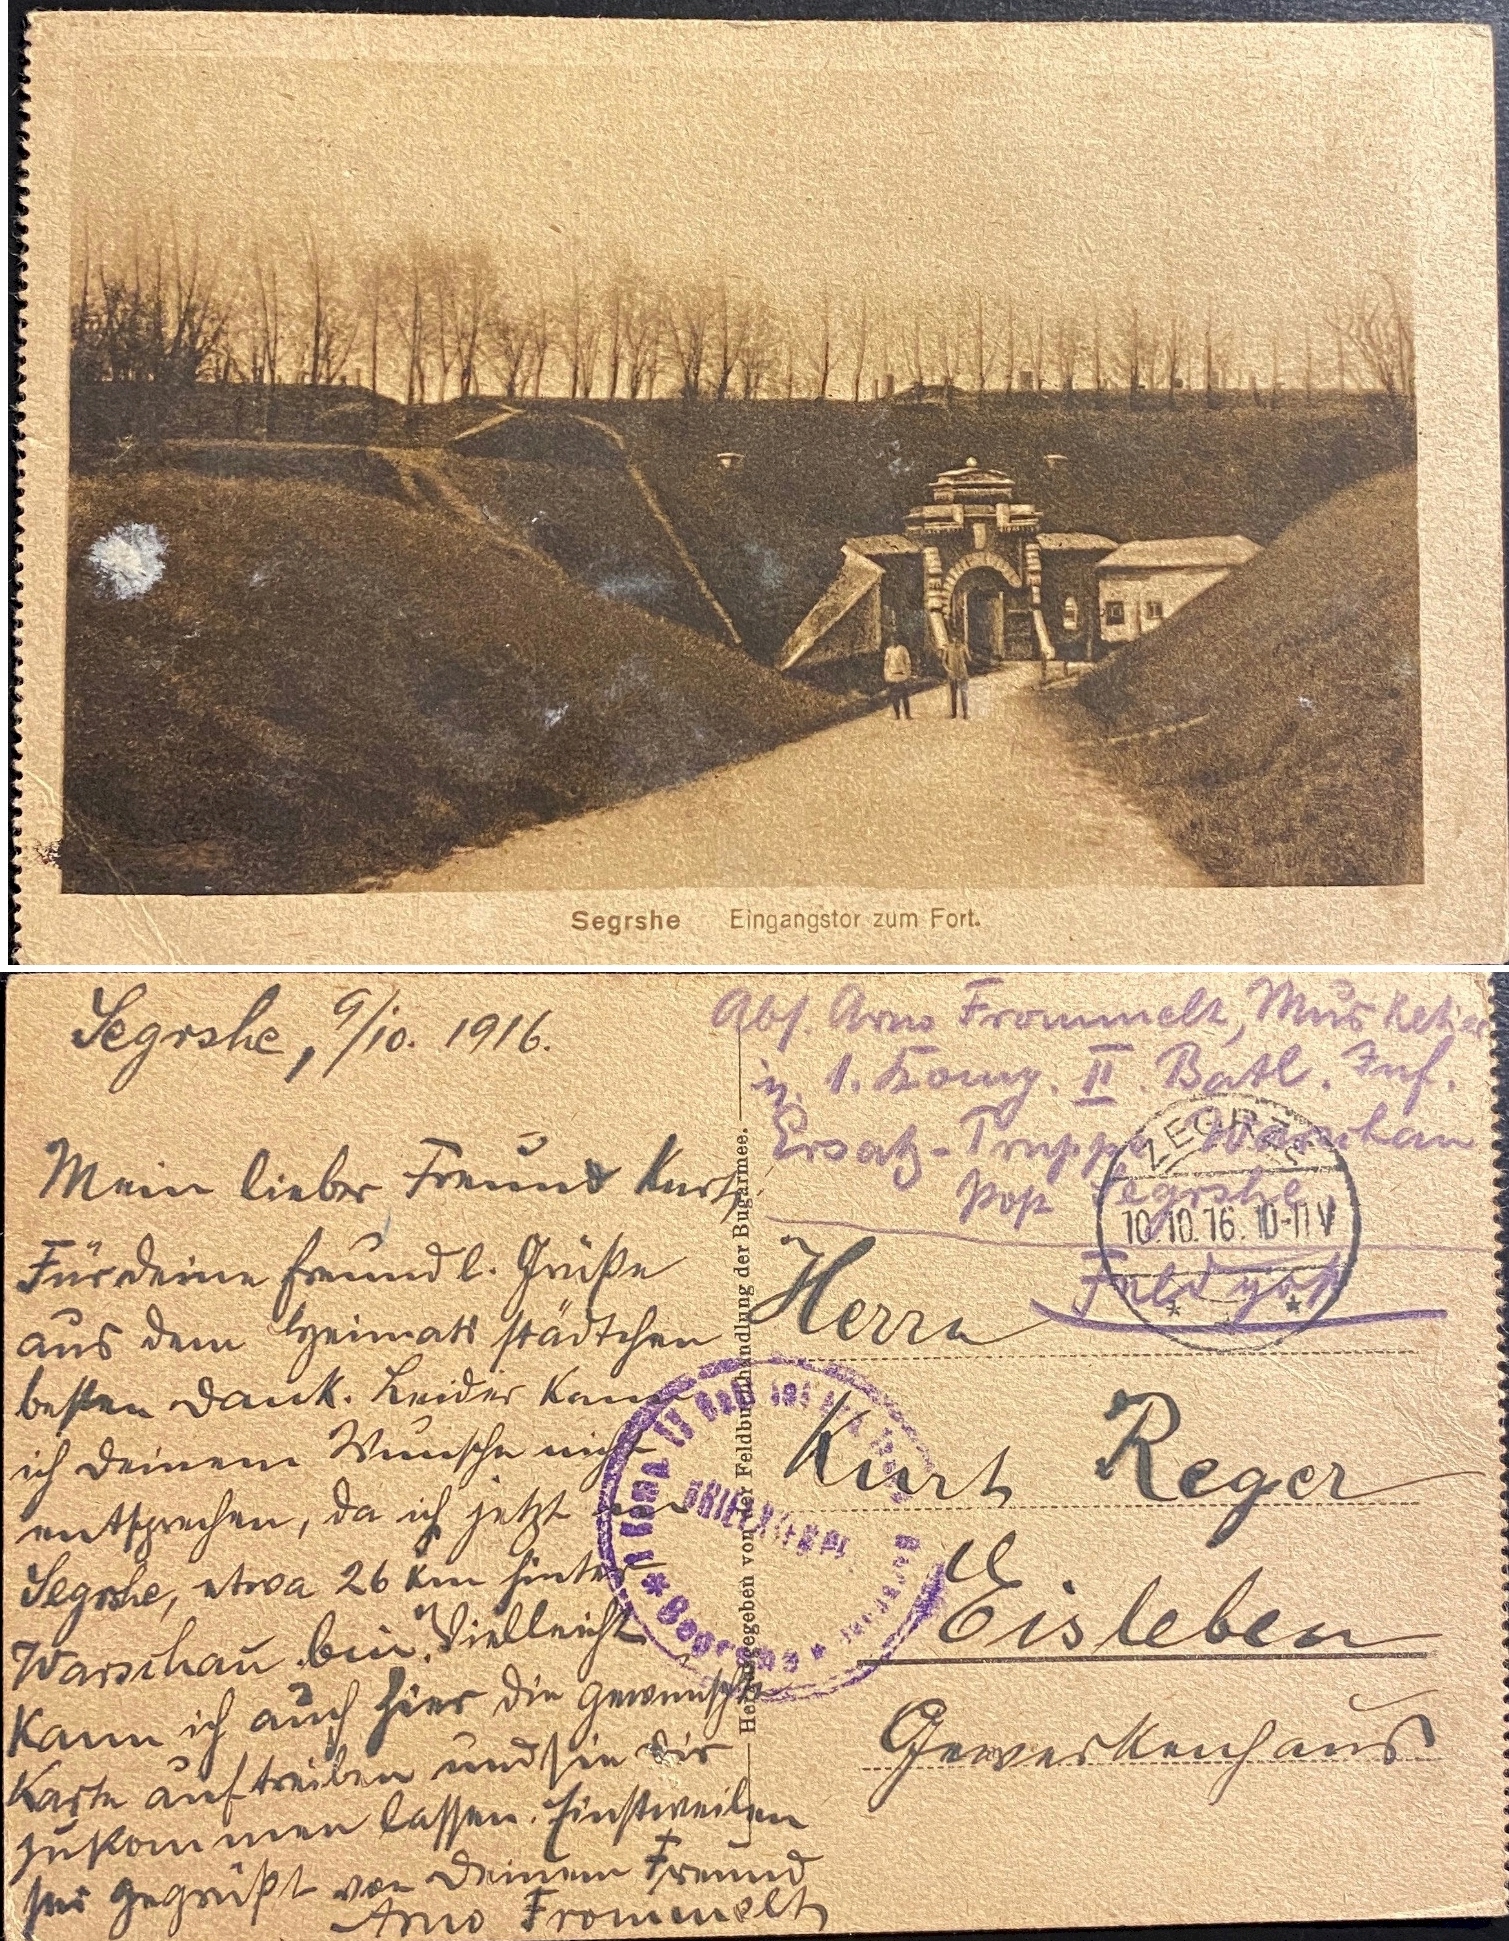 Segrshe Eingangstor zum Fort.
Segrshe, 9/10. 1916.
Mein lieber Freund Kurt,
Für deine freundl. Grüße
aus dem Heimatsstädtchen
besten Dank. Leider kann
ich deinem Wunsche nicht
entsprechen, da ich jetzt in
Segrshe, etwa 26 km hinter
Warschau bin. Vielleicht
kann ich auch hier die gewünschte
Karte auftreiben und sie dir
zukommen lassen. Einstweilen
sei gegrüßt von deinem Freund
Arno Frommelt
Herausgegeben von der Feldbuchhandlung der Bugarmee.
Abs. Arno Frommelt, Musketier
1. Komp. II. Batl. Inf.
Ersatz-Truppe Warschau
Post Segrshe
Feldpost
ZEGRZE
10.10.16. 10-11 V
BRIEFSTEMPEL
Segrshe
Herrn
Kurt Reger
Eisleben
Gewerkenhaus